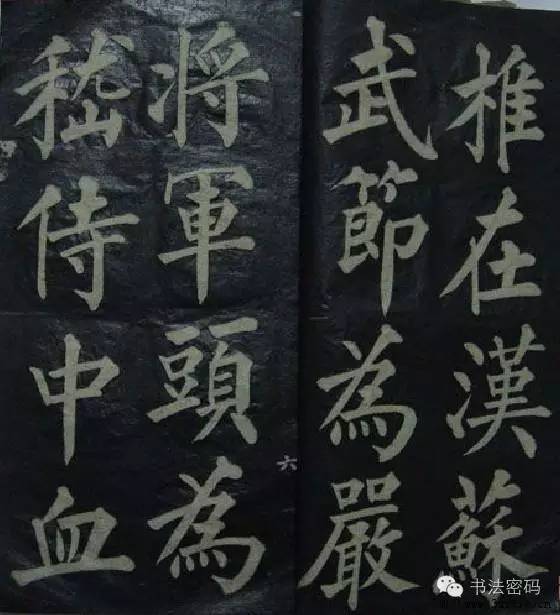 椎在漢蘇
武節為嚴
將軍頭為
嵇侍中血
六
书法密码